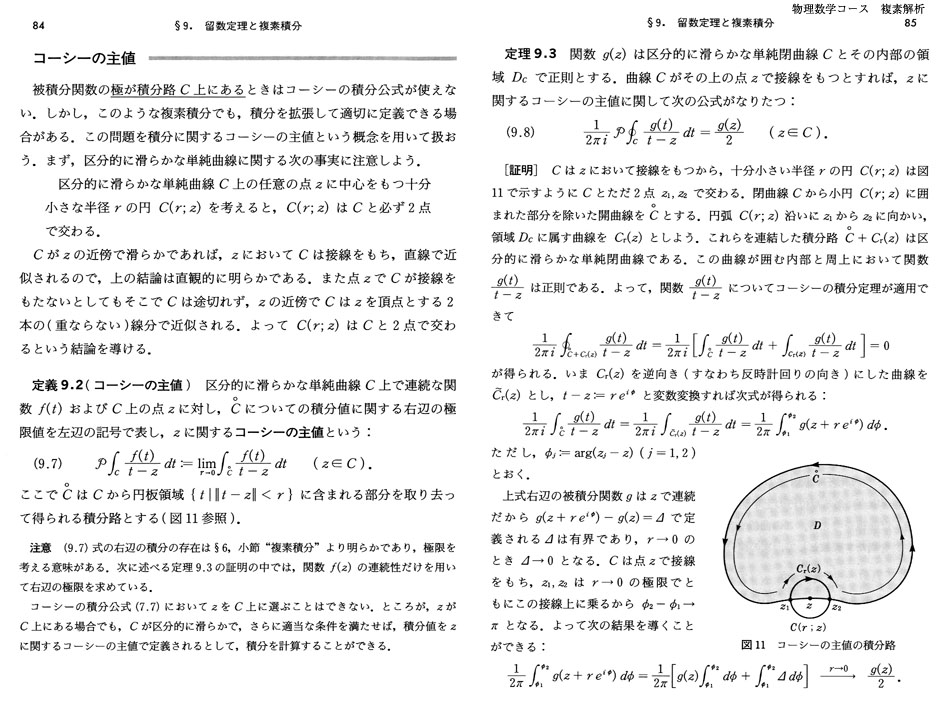 84
§9. 留数定理と複素積分
コーシーの主値
被積分関数の極が積分路 C 上にあるときはコーシーの積分公式が使えな
い．しかし，このような複素積分でも，積分を拡張して適切に定義できる場
合がある．この問題を積分に関するコーシーの主値という概念を用いて扱お
う．まず，区分的に滑らかな単純曲線に関する次の事実に注意しよう．
区分的に滑らかな単純曲線 C 上の任意の点 z に中心をもつ十分
小さな半径 r の円 C(r; z) を考えると，C(r; z) は C と必ず 2 点
で交わる．
C が z の近傍で滑らかであれば，z において C は接線をもち，直線で近
似されるので，上の結論は直観的に明らかである．また点 z で C が接線を
もたないとしてもそこで C は途切れず，z の近傍で C は z を頂点とする 2
本の(重ならない)線分で近似される．よって C(r; z) は C と 2 点で交わ
るという結論を導ける．
定義 9.2(コーシーの主値) 区分的に滑らかな単純曲線 C 上で連続な関
数 f(t) および C 上の点 z に対し，C̊ についての積分値に関する右辺の極
限値を左辺の記号で表し，z に関するコーシーの主値という：
(9.7) 𝒫∫_C f(t)/(t−z) dt := lim_{r→0} ∫_C̊ f(t)/(t−z) dt (z∈C).
ここで C̊ は C から円板領域 {t|‖t−z‖<r} に含まれる部分を取り去っ
て得られる積分路とする(図 11 参照)．
注意 (9.7) 式の右辺の積分の存在は §6，小節“複素積分”より明らかであり，極限を
考える意味がある．次に述べる定理 9.3 の証明の中では，関数 f(z) の連続性だけを用い
て右辺の極限を求めている．
コーシーの積分公式 (7.7) において z を C 上に選ぶことはできない．ところが，z が
C 上にある場合でも，C が区分的に滑らかで，さらに適当な条件を満たせば，積分値を z
に関するコーシーの主値で定義されるとして，積分を計算することができる．
物理数学コース 複素解析
§9. 留数定理と複素積分
85
定理 9.3 関数 g(z) は区分的に滑らかな単純閉曲線 C とその内部の領
域 D_C で正則とする．曲線 C がその上の点 z で接線をもつとすれば，z に
関するコーシーの主値に関して次の公式がなりたつ：
(9.8) 1/(2πi) 𝒫∮_C g(t)/(t−z) dt = g(z)/2 (z∈C).
［証明］ C は z において接線をもつから，十分小さい半径 r の円 C(r; z) は図
11 で示すように C とただ 2 点 z₁, z₂ で交わる．閉曲線 C から小円 C(r; z) に囲
まれた部分を除いた開曲線を C̊ とする．円弧 C(r; z) 沿いに z₁ から z₂ に向かい，
領域 D_C に属す曲線を C_r(z) としよう．これらを連結した積分路 C̊ + C_r(z) は区
分的に滑らかな単純閉曲線である．この曲線が囲む内部と周上において関数
g(t)/(t−z) は正則である．よって，関数 g(t)/(t−z) についてコーシーの積分定理が適用で
きて
1/(2πi) ∮_{C̊+C_r(z)} g(t)/(t−z) dt = 1/(2πi) [∫_C̊ g(t)/(t−z) dt + ∫_{C_r(z)} g(t)/(t−z) dt] = 0
が得られる．いま C_r(z) を逆向き(すなわち反時計回りの向き)にした曲線を
C̃_r(z) とし，t−z := re^{iφ} と変数変換すれば次式が得られる：
1/(2πi) ∫_C̊ g(t)/(t−z) dt = 1/(2πi) ∫_{C̃_r(z)} g(t)/(t−z) dt = 1/(2π) ∫_{φ₁}^{φ₂} g(z+re^{iφ}) dφ.
ただし，φ_j := arg(z_j−z) (j=1, 2)
とおく．
上式右辺の被積分関数 g は z で連続
だから g(z+re^{iφ})−g(z)=Δ で定
義される Δ は有界であり，r→0 の
とき Δ→0 となる．C は点 z で接線
をもち，z₁, z₂ は r→0 の極限でと
もにこの接線上に乗るから φ₂−φ₁→
π となる．よって次の結果を導くこと
ができる：
C̊
D
C_r(z)
z₁ z z₂
C(r; z)
図 11 コーシーの主値の積分路
1/(2π) ∫_{φ₁}^{φ₂} g(z+re^{iφ}) dφ = 1/(2π) [g(z)∫_{φ₁}^{φ₂} dφ + ∫_{φ₁}^{φ₂} Δ dφ] —r→0→ g(z)/2 .